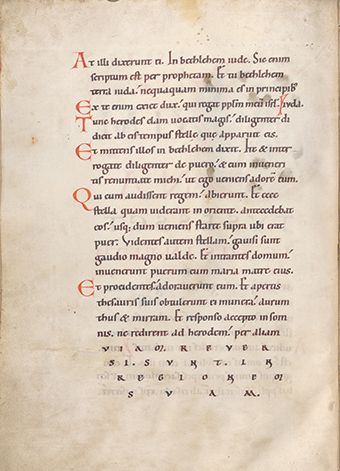 At illi dixerunt ei. In bethlehem iude. Sic enim
scriptum est per prophetam. Et tu bethlehem
terra iuda. nequaquam minima es in principib;
Ex te enim exiet dux. qui regat pplm meū isrl. Iuda.
Tunc herodes clam uocatis magis. diligenter di
dicit ab eis tempus stelle que apparuit eis.
Et mittens illos in bethlehem dixit. Ite & inter
rogate diligenter de puero. & cum inueneri
tis renuntiate michi. ut ego ueniens adorē eum.
Qui cum audissent regem. abierunt. Et ecce
stella quam uiderant in oriente. antecedebat
eos. usq; dum ueniens staret supra ubi erat
puer. Videntes autem stellam. gauisi sunt
gaudio magno ualde. Et intrantes domum.
inuenerunt puerum cum maria matre eius.
Et procidentes adorauerunt eum. Et apertis
thesauris suis obtulerunt ei munera. aurum
thus & mirram. Et responso accepto in som
nis. ne redirent ad herodem. per aliam
VIAM REVER
SI. SVNT. IN
REGIONEM
SVAM.